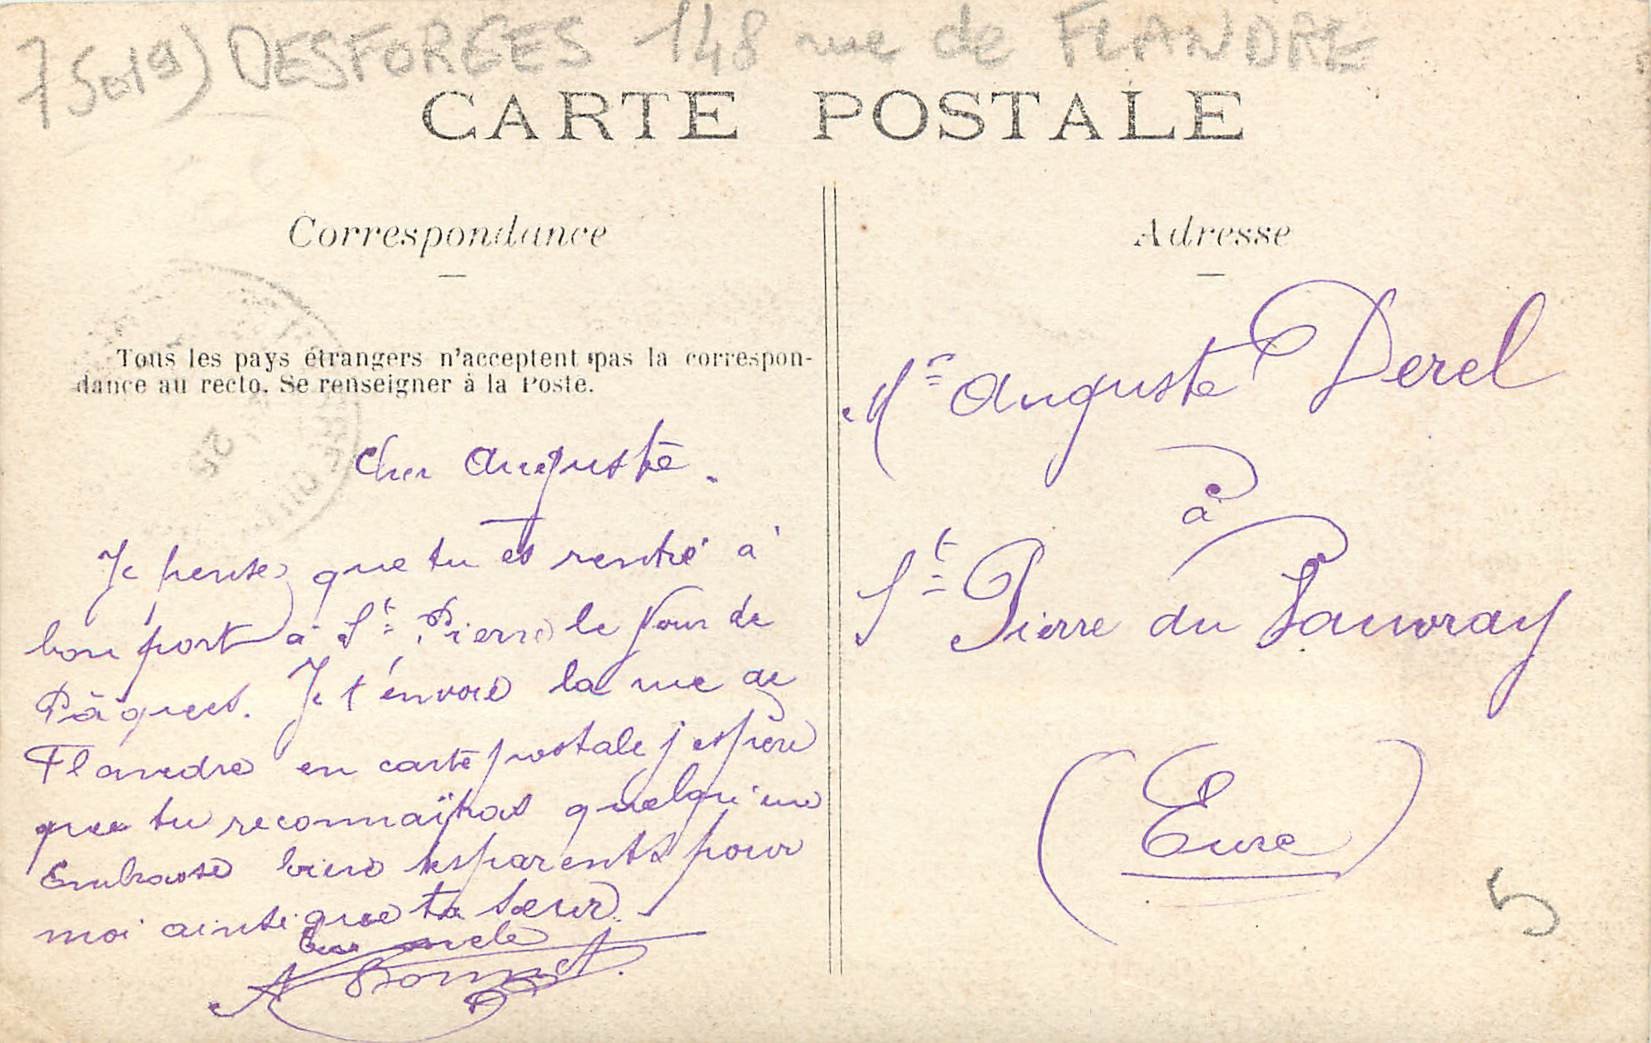 75019) DESFORGES 148 rue de FLANDRE
CARTE POSTALE
Correspondance
Tous les pays étrangers n'acceptent pas la correspon-
dance au recto. Se renseigner à la Poste.
25
Cher Auguste.
Je pense que tu es rentré à
bon port à St Pierre le Jour de
Pâques. Je t'envoie la rue de
Flandre en carte postale j'espère
que tu reconnaîtras quelqu'un
Embrasse bien tes parents pour
moi ainsi que ta sœur.
Ton oncle
A Bonnet.
Adresse
Mr Auguste Derel
à
St Pierre du Vauvray
(Eure)
5